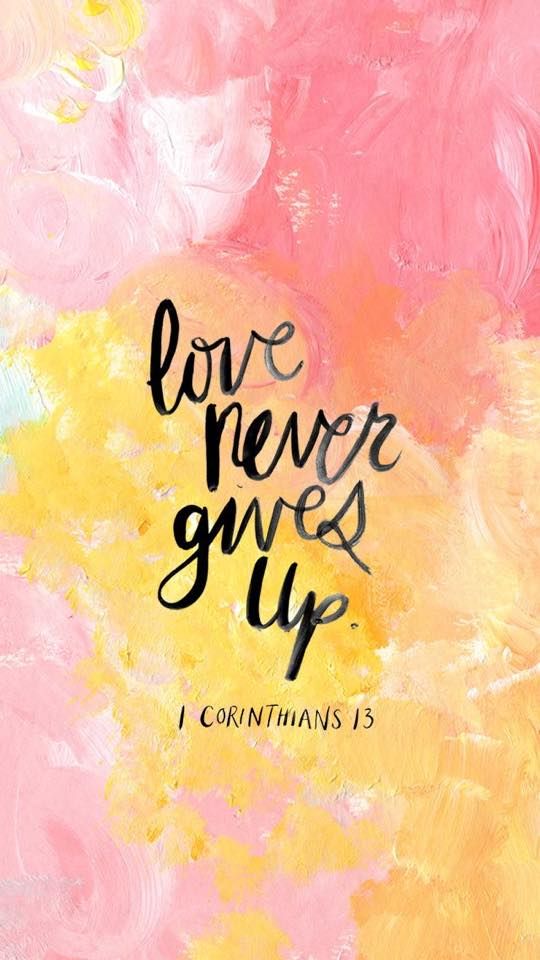 love
never
gives
up.
1 CORINTHIANS 13